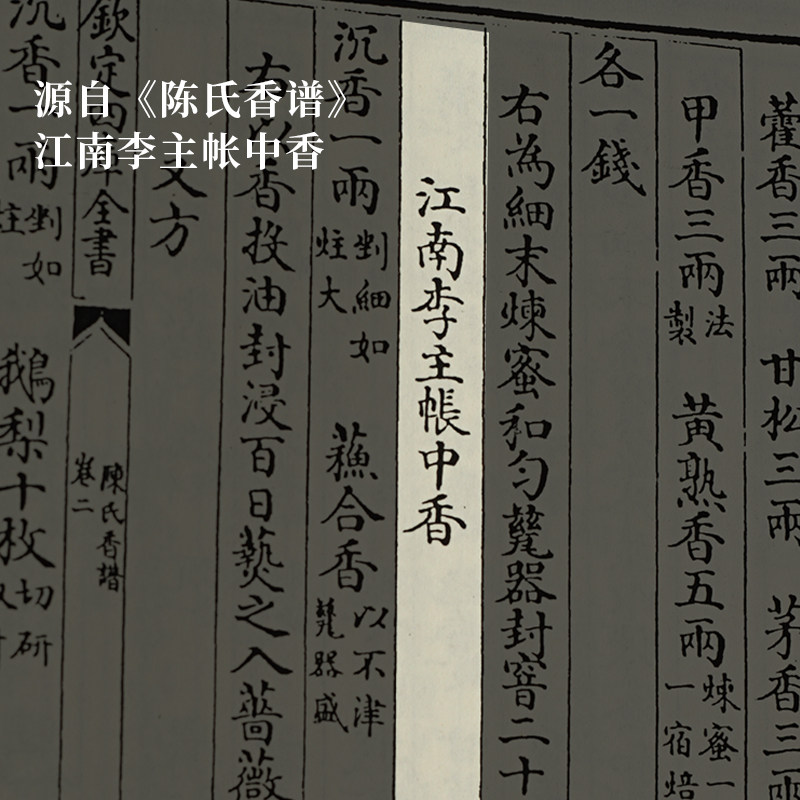 源自《陈氏香谱》
江南李主帐中香
藿香三兩 甘松三兩 茅香三
甲香三兩 法製 黃熟香五兩 煉蜜一宿焙
各一錢
右為細末煉蜜和勻甆器封窨二十
江南李主帳中香
沉香一兩 剉細如炷大 蘓合香 以不津甆器盛
右以香投油封浸百日爇之入薔薇
又方
欽定四庫全書
陳氏香譜
卷二
沉香一兩 剉如炷 鵝梨十枚 切研